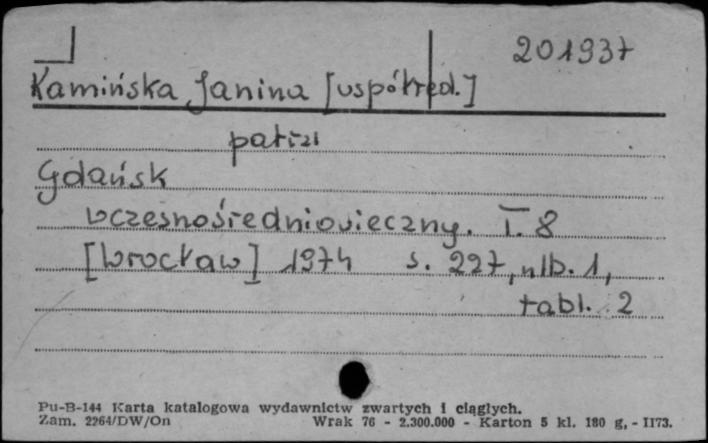 201937
Kamińska Janina [współred.]
patrz
Gdańsk
wczesnośredniowieczny. T. 8
[Wrocław] 1974 s. 227, nlb. 1,
tabl. 2
Pu-B-144 Karta katalogowa wydawnictw zwartych i ciągłych.
Zam. 2264/DW/On Wrak 76 - 2.300.000 - Karton 5 kl. 180 g, - II73.